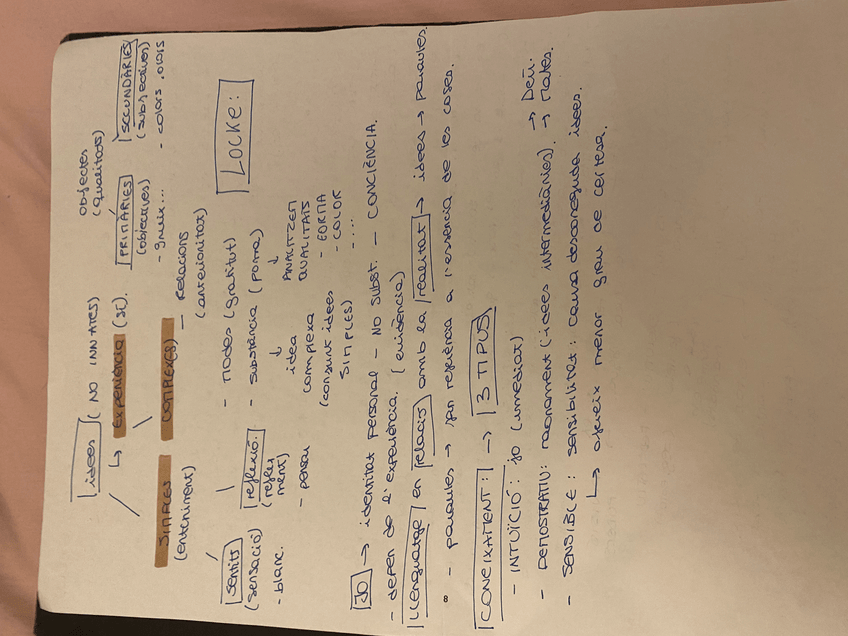 LOCKE:
idees (NO INNATES)
↳ Experiència (sí).
objectes
(qualitats)
PRIMÀRIES
(objectives)
- gruix...
SECUNDÀRIES
(subjectives)
- colors, olors
SIMPLES
(enteniment)
COMPLEXES
- Relacions
(anterioritat)
- modes (gratitut)
- substància (poma)
sentits
(sensació)
- blanc.
reflexió:
(reflexment)
- pensar
idea
complexa
(conjunt idees
SIMPLES)
ANALITZEM
QUALITATS
- FORMA
- COLOR
- ....
JO → identitat personal - NO SUBST. - CONCIÈNCIA.
- depèn de l'experiència. (evidència)
Llenguatge en relació amb la realitat → idees → paraules.
- paraules → fan referència a l'essència de les coses.
CONEIXAMENT: → 3 TIPUS
- INTUÏCIÓ: JO (immediat)
- DEMOSTRATIU: raonament (idees intermediàries). → Déu. → Mates.
- SENSIBLE: sensibilitat: causa desconeguda idees.
↳ ofereix menor grau de certesa.